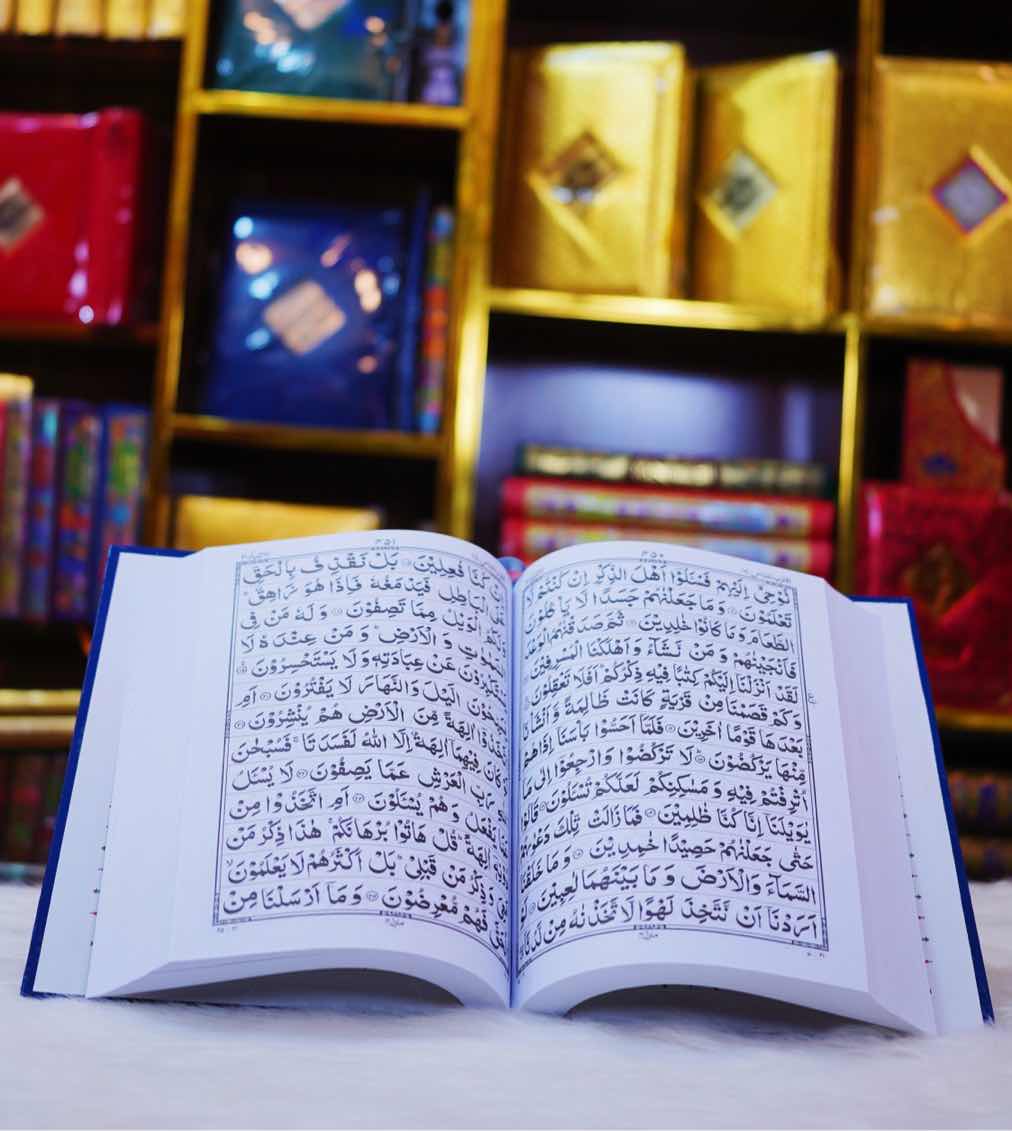 ۳۵۰
نُّوْحِیْۤ اِلَیْهِمْ فَسْـَٔلُوْۤا اَهْلَ الذِّكْرِ اِنْ كُنْتُمْ لَا
تَعْلَمُوْنَ ۷ وَ مَا جَعَلْنٰهُمْ جَسَدًا لَّا یَاْكُلُوْنَ
الطَّعَامَ وَ مَا كَانُوْا خٰلِدِیْنَ ۸ ثُمَّ صَدَقْنٰهُمُ الْوَعْدَ
فَاَنْجَیْنٰهُمْ وَ مَنْ نَّشَآءُ وَ اَهْلَكْنَا الْمُسْرِفِیْنَ
لَقَدْ اَنْزَلْنَاۤ اِلَیْكُمْ كِتٰبًا فِیْهِ ذِكْرُكُمْ اَفَلَا تَعْقِلُوْنَ
وَ كَمْ قَصَمْنَا مِنْ قَرْیَةٍ كَانَتْ ظَالِمَةً وَّ اَنْشَاْنَا
بَعْدَهَا قَوْمًا اٰخَرِیْنَ ۱۱ فَلَمَّاۤ اَحَسُّوْا بَاْسَنَاۤ اِذَا هُمْ
مِّنْهَا یَرْكُضُوْنَ ۱۲ لَا تَرْكُضُوْا وَ ارْجِعُوْۤا اِلٰى مَاۤ
اُتْرِفْتُمْ فِیْهِ وَ مَسٰكِنِكُمْ لَعَلَّكُمْ تُسْـَٔلُوْنَ ۱۳ قَالُوْا
یٰوَیْلَنَاۤ اِنَّا كُنَّا ظٰلِمِیْنَ ۱۴ فَمَا زَالَتْ تِّلْكَ دَعْوٰىهُمْ
حَتّٰى جَعَلْنٰهُمْ حَصِیْدًا خٰمِدِیْنَ ۱۵ وَ مَا خَلَقْنَا
السَّمَآءَ وَ الْاَرْضَ وَ مَا بَیْنَهُمَا لٰعِبِیْنَ ۱۶
اَرَدْنَاۤ اَنْ نَّتَّخِذَ لَهْوًا لَّا تَّخَذْنٰهُ مِنْ لَّدُنَّاۤ
۳۵۱
اِنْ كُنَّا فٰعِلِیْنَ ۱۷ بَلْ نَقْذِفُ بِالْحَقِّ
عَلَى الْبَاطِلِ فَیَدْمَغُهٗ فَاِذَا هُوَ زَاهِقٌ
وَ لَكُمُ الْوَیْلُ مِمَّا تَصِفُوْنَ ۱۸ وَ لَهٗ مَنْ فِی
السَّمٰوٰتِ وَ الْاَرْضِ وَ مَنْ عِنْدَهٗ لَا
یَسْتَكْبِرُوْنَ عَنْ عِبَادَتِهٖ وَ لَا یَسْتَحْسِرُوْنَ ۱۹
یُسَبِّحُوْنَ الَّیْلَ وَ النَّهَارَ لَا یَفْتُرُوْنَ ۲۰ اَمِ
اتَّخَذُوْۤا اٰلِهَةً مِّنَ الْاَرْضِ هُمْ یُنْشِرُوْنَ ۲۱
لَوْ كَانَ فِیْهِمَاۤ اٰلِهَةٌ اِلَّا اللّٰهُ لَفَسَدَتَا فَسُبْحٰنَ
اللّٰهِ رَبِّ الْعَرْشِ عَمَّا یَصِفُوْنَ ۲۲ لَا یُسْـَٔلُ
عَمَّا یَفْعَلُ وَ هُمْ یُسْـَٔلُوْنَ ۲۳ اَمِ اتَّخَذُوْا مِنْ
دُوْنِهٖۤ اٰلِهَةً قُلْ هَاتُوْا بُرْهَانَكُمْ هٰذَا ذِكْرُ مَنْ
مَّعِیَ وَ ذِكْرُ مَنْ قَبْلِیْ بَلْ اَكْثَرُهُمْ لَا یَعْلَمُوْنَ
الْحَقَّ فَهُمْ مُّعْرِضُوْنَ ۲۴ وَ مَاۤ اَرْسَلْنَا مِنْ